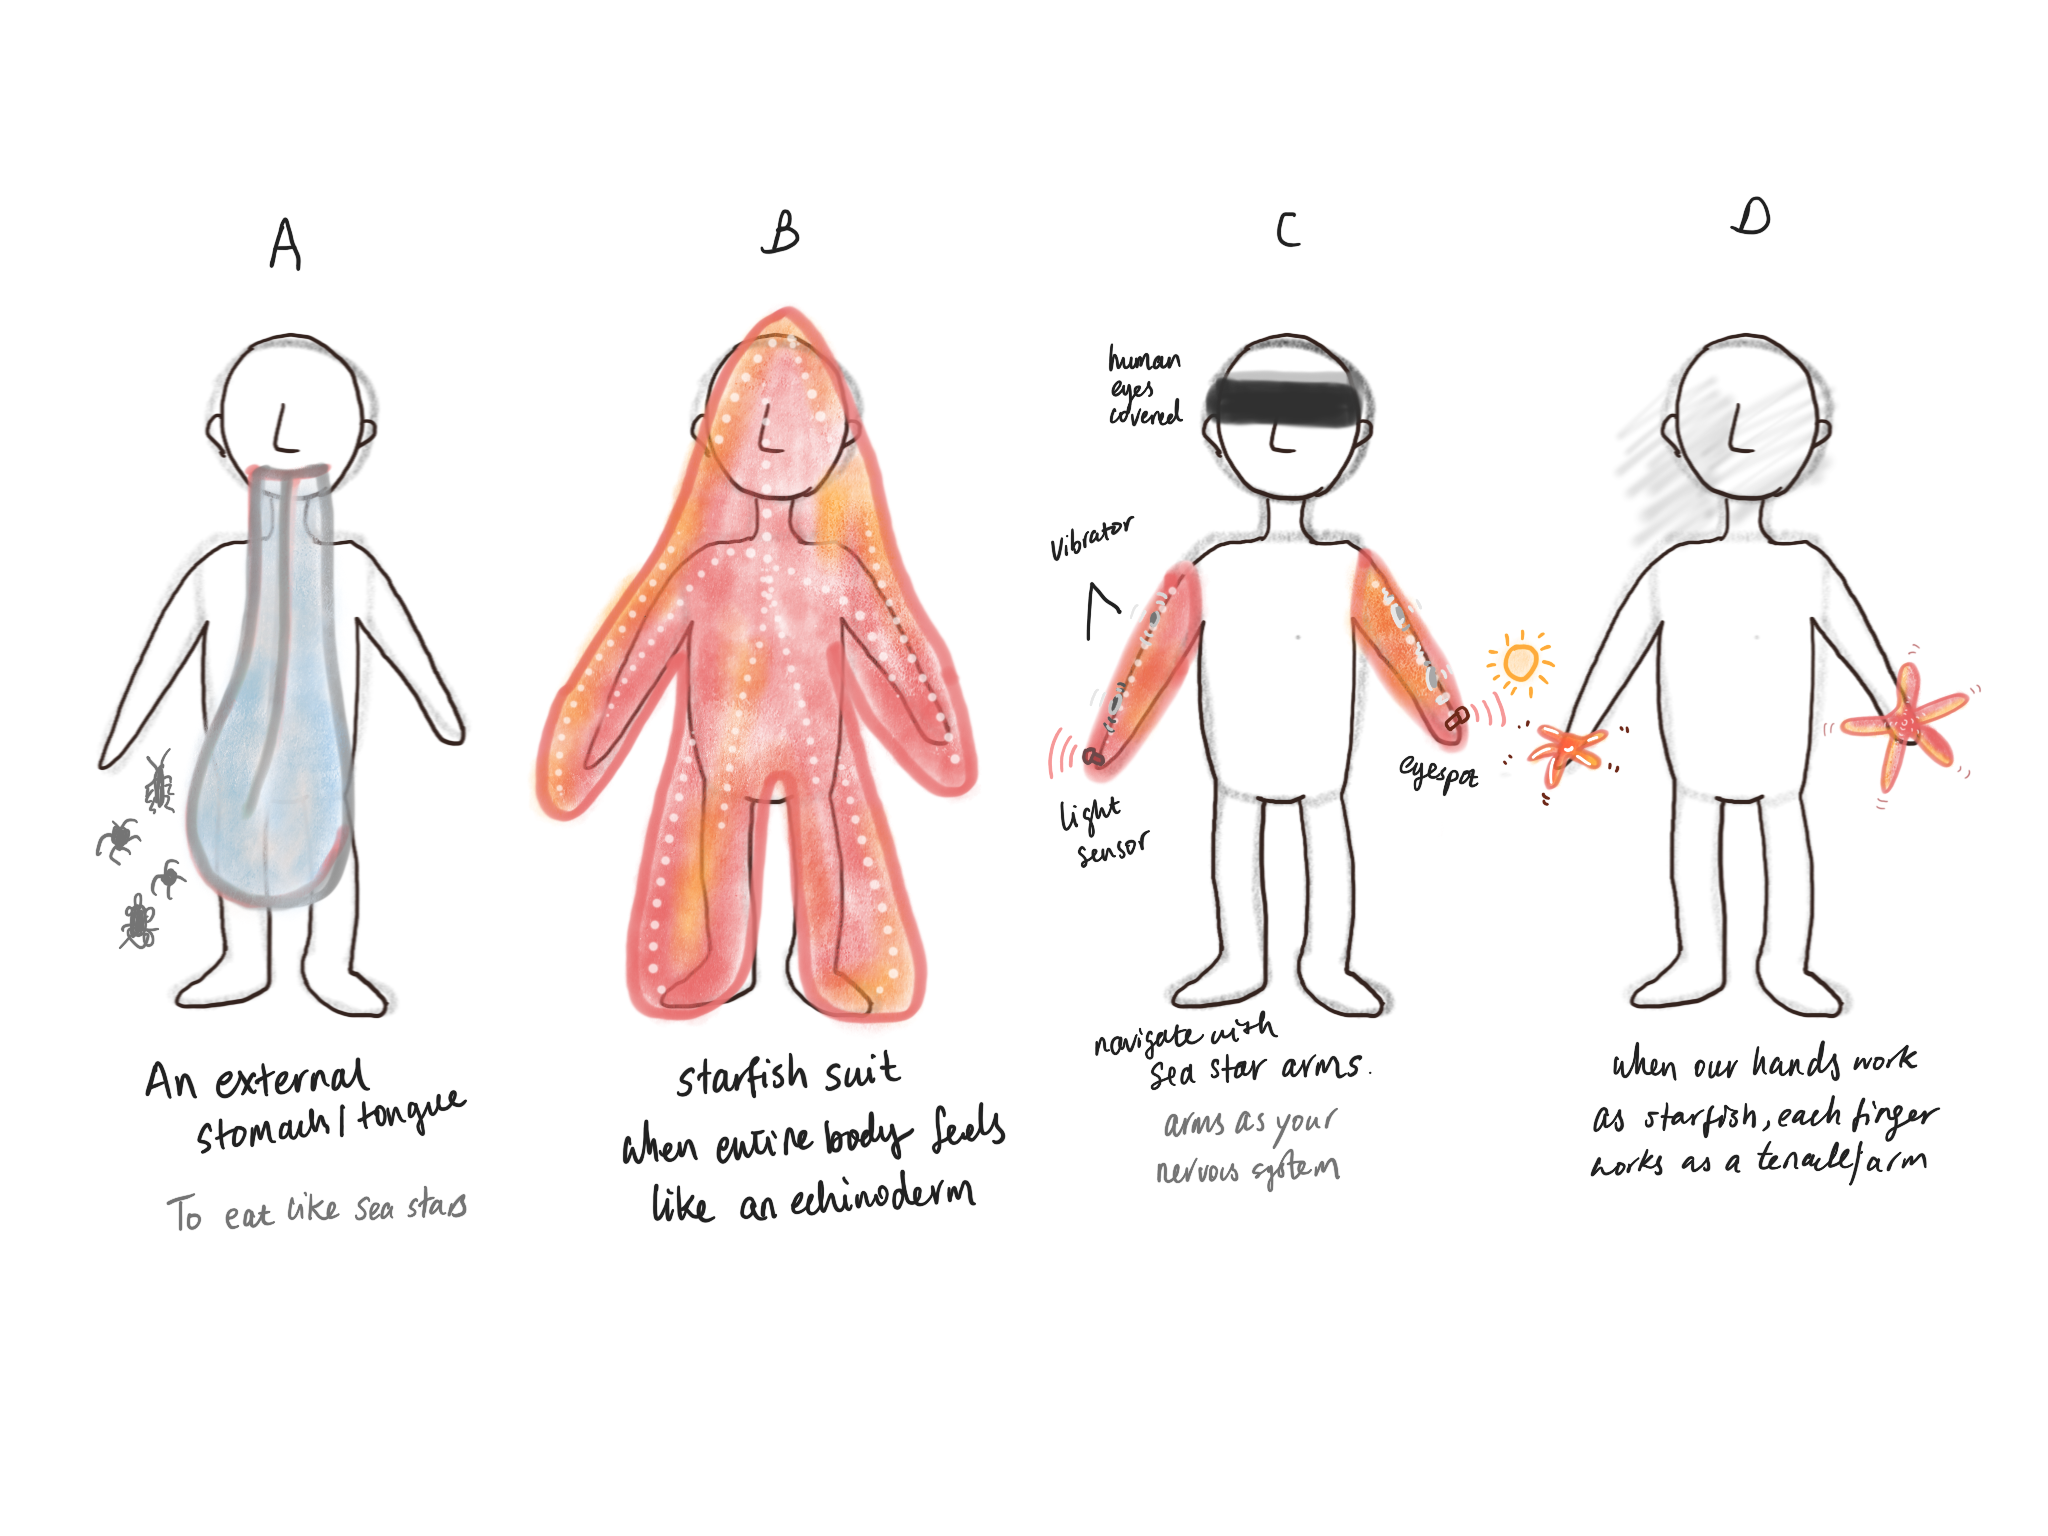 A
An external
stomach/tongue
To eat like sea stars
B
starfish suit
when entire body feels
like an echinoderm
C
human
eyes
covered
Vibrator
light
sensor
eyespot
navigate with
sea star arms.
arms as your
nervous system
D
when our hands work
as starfish, each finger
works as a tenacle/arm